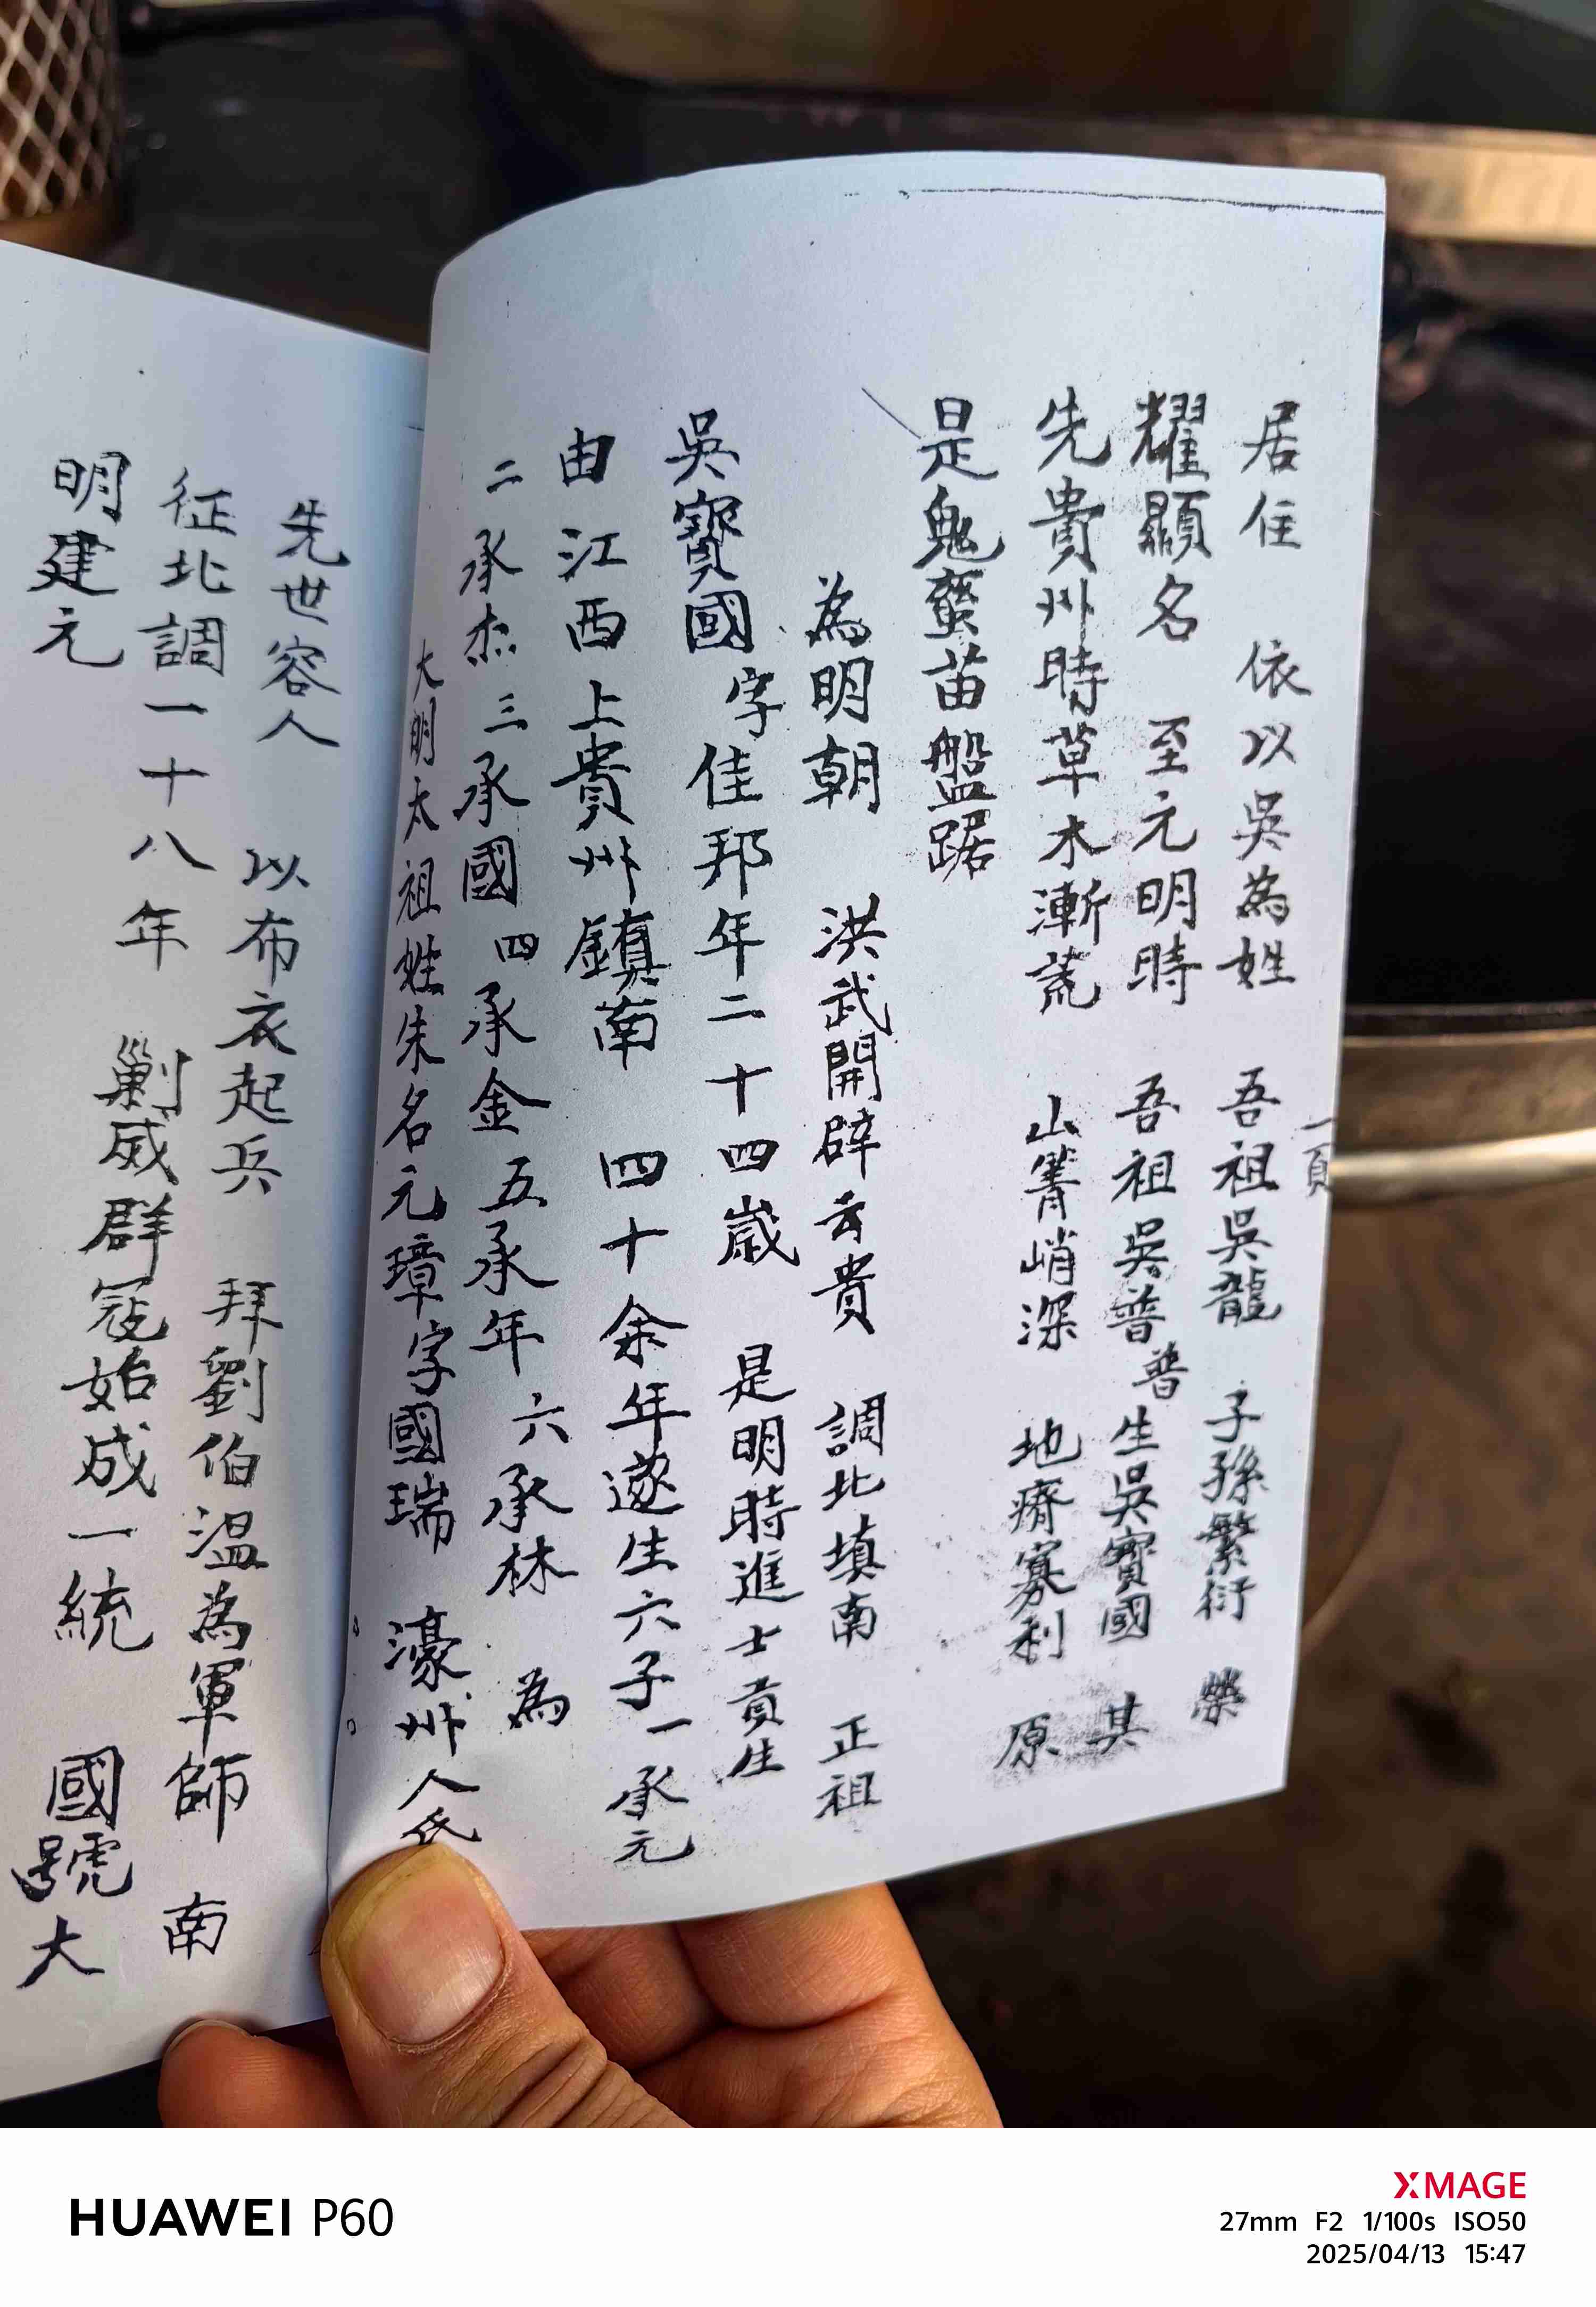 一頁
居住 依以吳為姓 吾祖吳龍 子孫繁衍 榮
耀顯名 至元明時 吾祖吳普 普生吳寶國 其
先貴州時草木漸荒 山箐峭深 地瘠寡利 原
是鬼蠻苗盤踞
為明朝 洪武開辟云貴 調北填南 正祖
吳寶國 字佳邦年二十四歲 是明時進士貢生
由江西上貴州鎮南 四十余年遂生六子一承元
二承杰三承國四承金五承年六承林 為
大明太祖姓朱名元璋字國瑞 濠州人氏
先世容人 以布衣起兵 拜劉伯溫為軍師 南
征北調一十八年 剿威群寇始成一統 國號大
明建元
HUAWEI P60
XMAGE
27mm F2 1/100s ISO50
2025/04/13 15:47